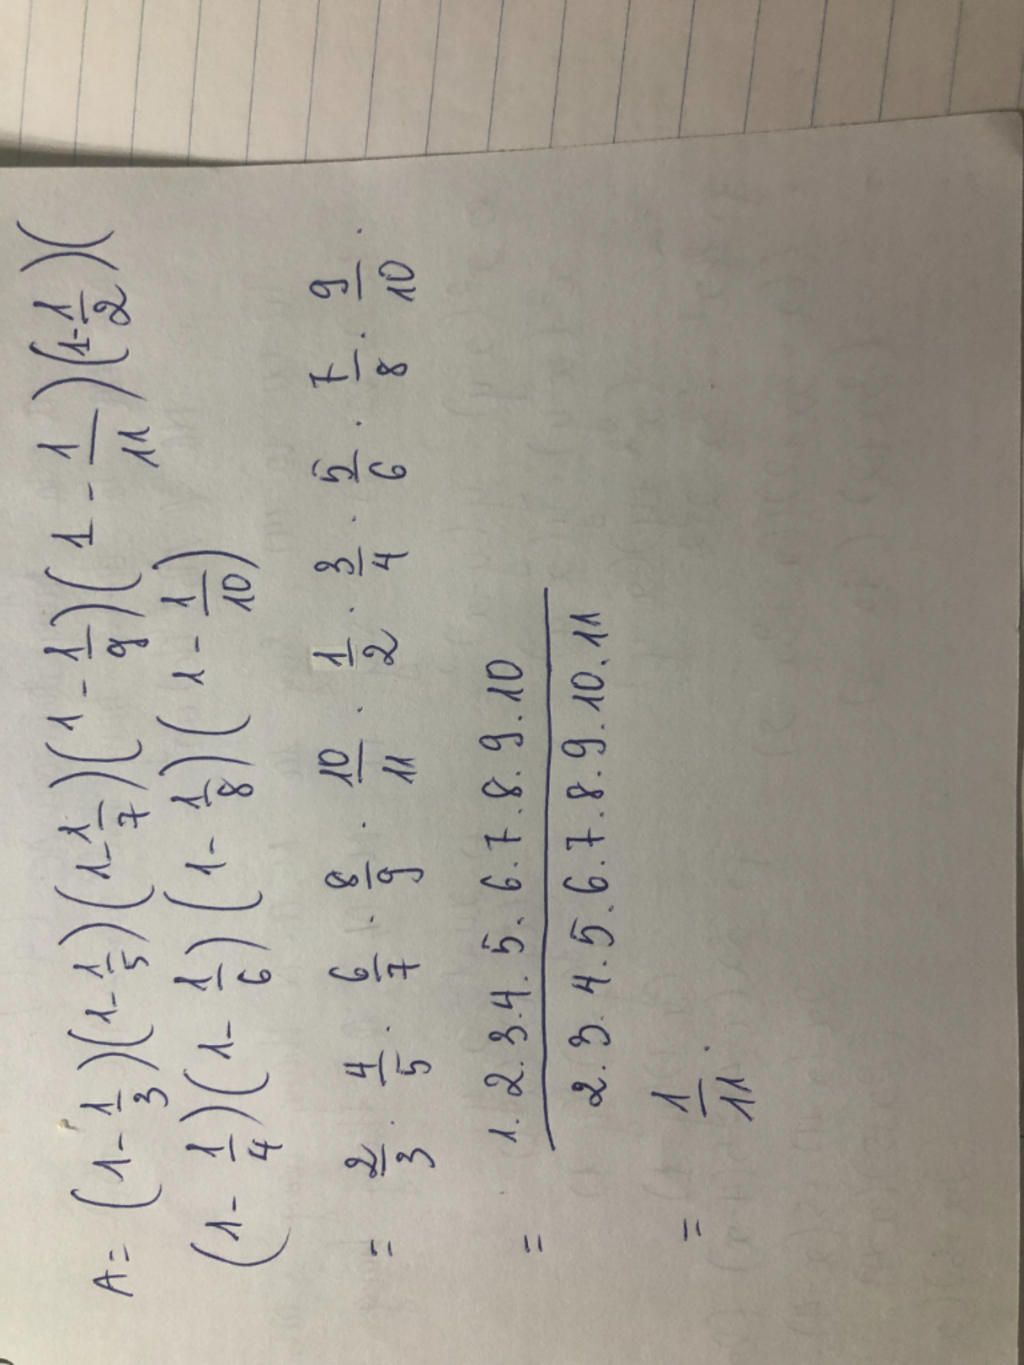 A = (1 - 1/3)(1 - 1/5)(1 - 1/7)(1 - 1/9)(1 - 1/11)(1 - 1/2)(
(1 - 1/4)(1 - 1/6)(1 - 1/8)(1 - 1/10)
= 2/3 . 4/5 . 6/7 . 8/9 . 10/11 . 1/2 . 3/4 . 5/6 . 7/8 . 9/10 .
= 1.2.3.4.5.6.7.8.9.10 / 2.3.4.5.6.7.8.9.10.11
= 1/11 .